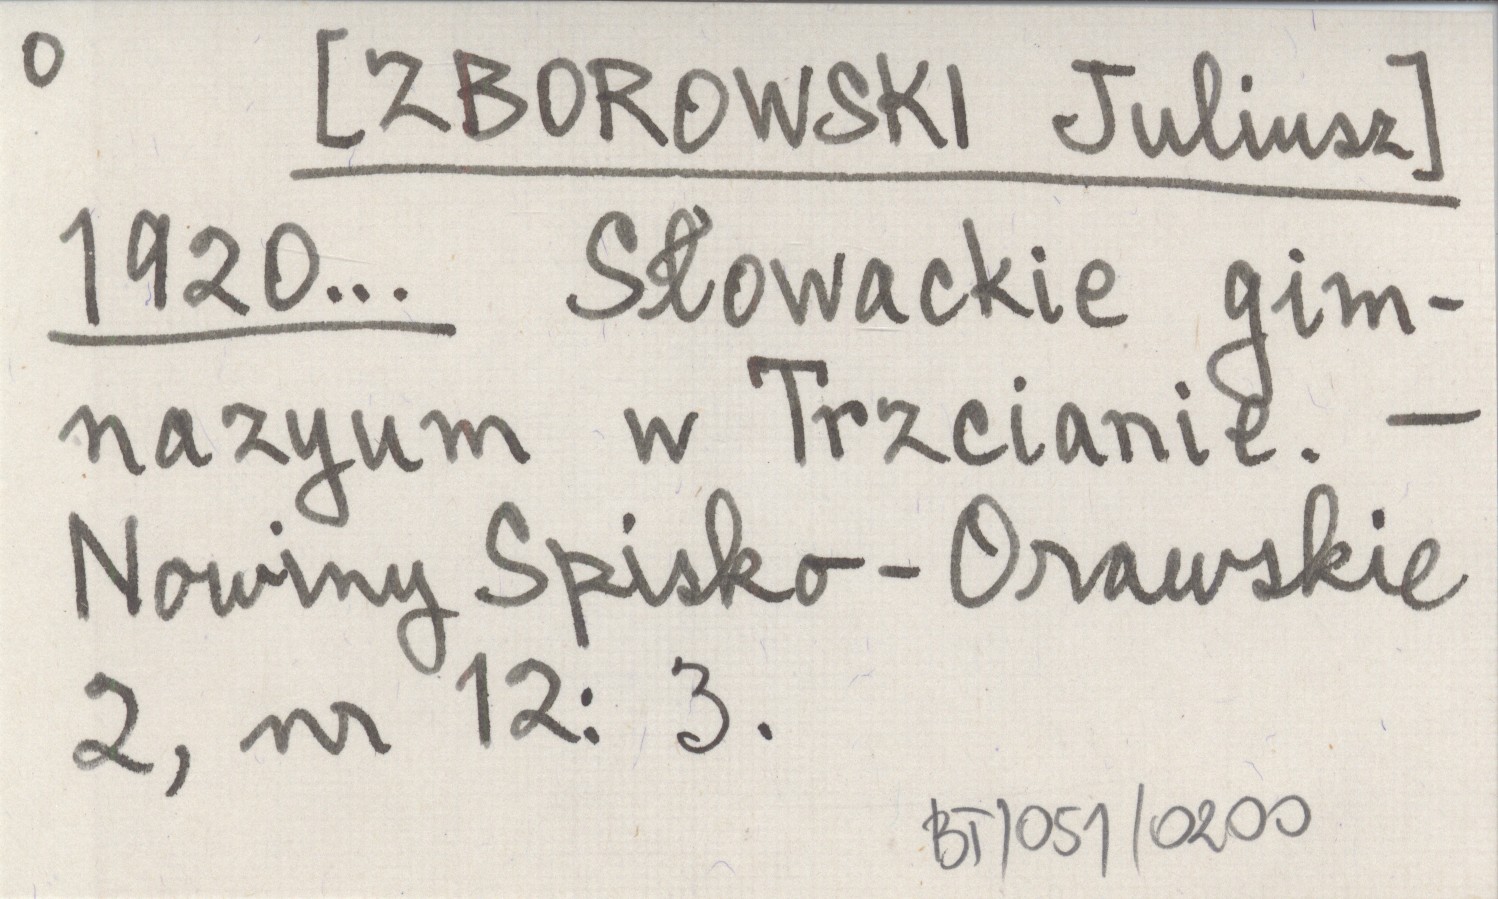 o [ZBOROWSKI Juliusz]
1920... Słowackie gim-
nazyum w Trzcianie. —
Nowiny Spisko-Orawskie
2, nr 12: 3.
BT/051/0200